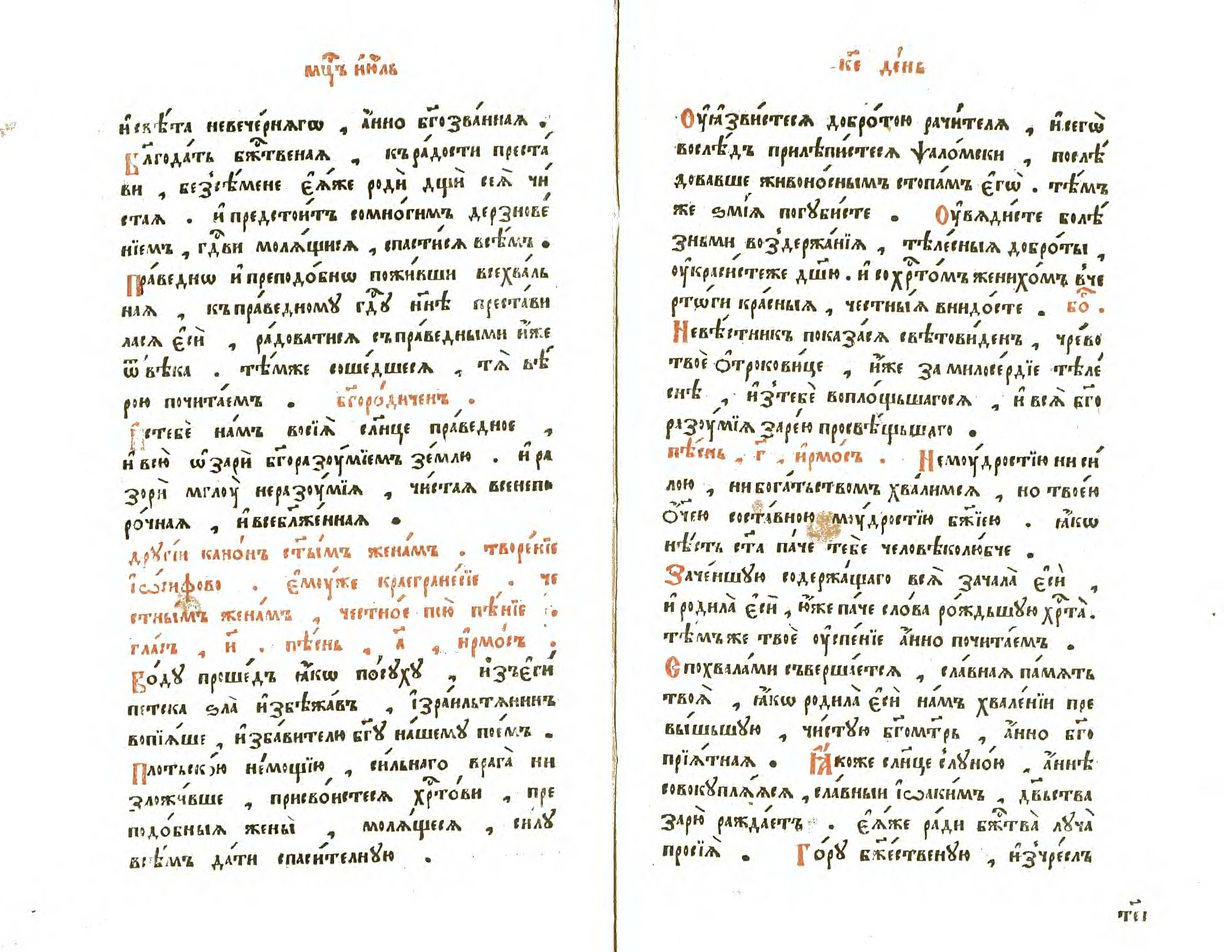 мц҃ъ і҆ю́ль
и҆свѣ́та невече́рнягѡ , а҆́нно бг҃озва́нная .
Бл҃года́ть бж҃твеная , къра́дости преста́
ви , безсѣ́мене є҆я́же родѝ дщѝ сеѧ̀ чи́
стая . и҆ предстои́тъ сомно́гимъ дерзнове́
нїемъ , гд҃ви моля́щися , спасти́ся всѣ́мъ .
Пра́веднѡ и҆ преподо́бнѡ пожи́вши всехва́ль
ная , къ пра́ведному гд҃у нн҃ѣ преста́ви
лася є҆сѝ , ра́доватися съпра́ведными и҆́же
ѿ вѣ́ка . тѣ́мже соше́дшеся , тѧ̀ вѣ́
рою почита́емъ . бг҃оро́диченъ .
И҆стебе́ на́мъ восїя̀ сл҃нце пра́ведное ,
и҆ всю̀ ѡ҆зарѝ бг҃оразꙋ́мїемъ зе́млю . и҆ ра
зорѝ мглꙋ̀ неразꙋ́мїя , чи́стая всенепо
ро́чная , и҆ всебл҃же́нная .
дрꙋгі́и кано́нъ ст҃ы́мъ жена́мъ . творе́нїе
і҆ѡ́сифово . є҆мꙋ́же краегране́сїе . че
стны́мъ жена́мъ , че́стно́е пою̀ пѣ́нїе .
гла́съ , и҃ . пѣ́снь , а҃ , і҆рмо́съ .
Во́дꙋ проше́дъ ꙗ҆́кѡ по́сꙋхꙋ , и҆зъє҆ги́
петска ѕла̀ и҆збѣжа́въ , і҆зра́ильтянинъ
вопїя́ше , и҆зба́вителю бг҃ꙋ на́шемꙋ пое́мъ .
Пло́тьскою не́мощїю , си́льнаго врага̀ ни
зложи́вше , присво́истеся хр҃то́ви , пре
подо́бныя жены̀ , моля́щеся , си́лꙋ
всѣ́мъ да́ти спаси́тельнꙋю .
к҃е де́нь
Оу҆я́звистеся добро́тою рачи́теля , и҆ сегѡ̀
вослѣ́дъ прилѣпи́стеся ѱало́мски , послѣ́
довавше живоно́снымъ стопа́мъ є҆гѡ̀ . тѣ́мъ
же ѕмі́я погꙋби́сте . Оу҆вяди́сте болѣ́
зньми воздержа́нїя , тѣле́сныя добро́ты ,
оу҆краси́стеже дш҃ю . и҆ сохр҃то́мъ женихо́мъ вче
рто́ги кра́сныя , че́стны́я внидо́сте . бо҃ .
Невѣ́стникъ показа́ся свѣтови́денъ , чре́во
твоѐ ѻ҆трокови́це , и҆́же за милосе́рдїе тѣле́
снѣ , и҆зтебе́ воплощьшагося , и҆ вся̀ бг҃о
разꙋ́мїя заре́ю просвѣщьшаго .
пѣ́снь , г҃ , і҆рмо́съ . Немꙋ́дростїю ни си́
лою , ни бога́тьствомъ хвали́мся , но твое́ю
ѻ҆́чею соста́вною мꙋ́дростїю бж҃їею . ꙗ҆́кѡ
нѣ́сть ст҃а па́че тебѐ человѣколю́бче .
Заче́ншꙋю содержа́щаго вся̀ зача́ла є҆сѝ ,
и҆ родила̀ є҆сѝ , ю҆́же па́че сло́ва ро́ждьшꙋю хр҃та̀ .
тѣ́мъже твоѐ оу҆спе́нїе а҆́нно почита́емъ .
Спохвала́ми съверша́ется , сла́вная па́мять
твоя̀ , ꙗ҆́кѡ родила̀ є҆сѝ на́мъ хвале́нїи пре
вы́шьшꙋю , чи́стꙋю бг҃омт҃рь , а҆́нно бг҃о
прїя́тная . Ꙗ҆́коже сл҃нце слꙋно́ю , а҆́ннѣ
совокꙋпля́яся , сла́вныи і҆ѡаки́мъ , дв҃ьства
зарю̀ ражда́етъ . є҆я́же ра́ди бж҃тва̀ лꙋча̀
просїя̀ . Го́рꙋ бж҃е́ственꙋю , и҆зчре́слъ